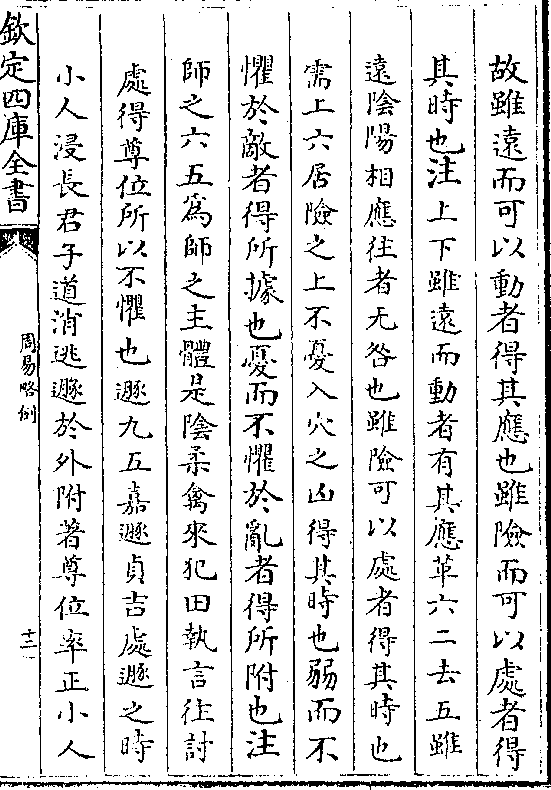 故雖遠而可以動者得其應也雖險而可以處者得
其時也注上下雖遠而動者有其應革六二去五雖
遠陰陽相應往者无咎也雖險可以處者得其時也
需上六居險之上不憂入穴之凶得其時也弱而不
懼於敵者得所據也憂而不懼於亂者得所附也注
師之六五爲師之主體是陰柔禽來犯田執言往討
處得尊位所以不懼也遯九五嘉遯貞吉處遯之時
小人浸長君子道消逃遯於外附著尊位率正小人
欽定四庫全書
周易略例
十二